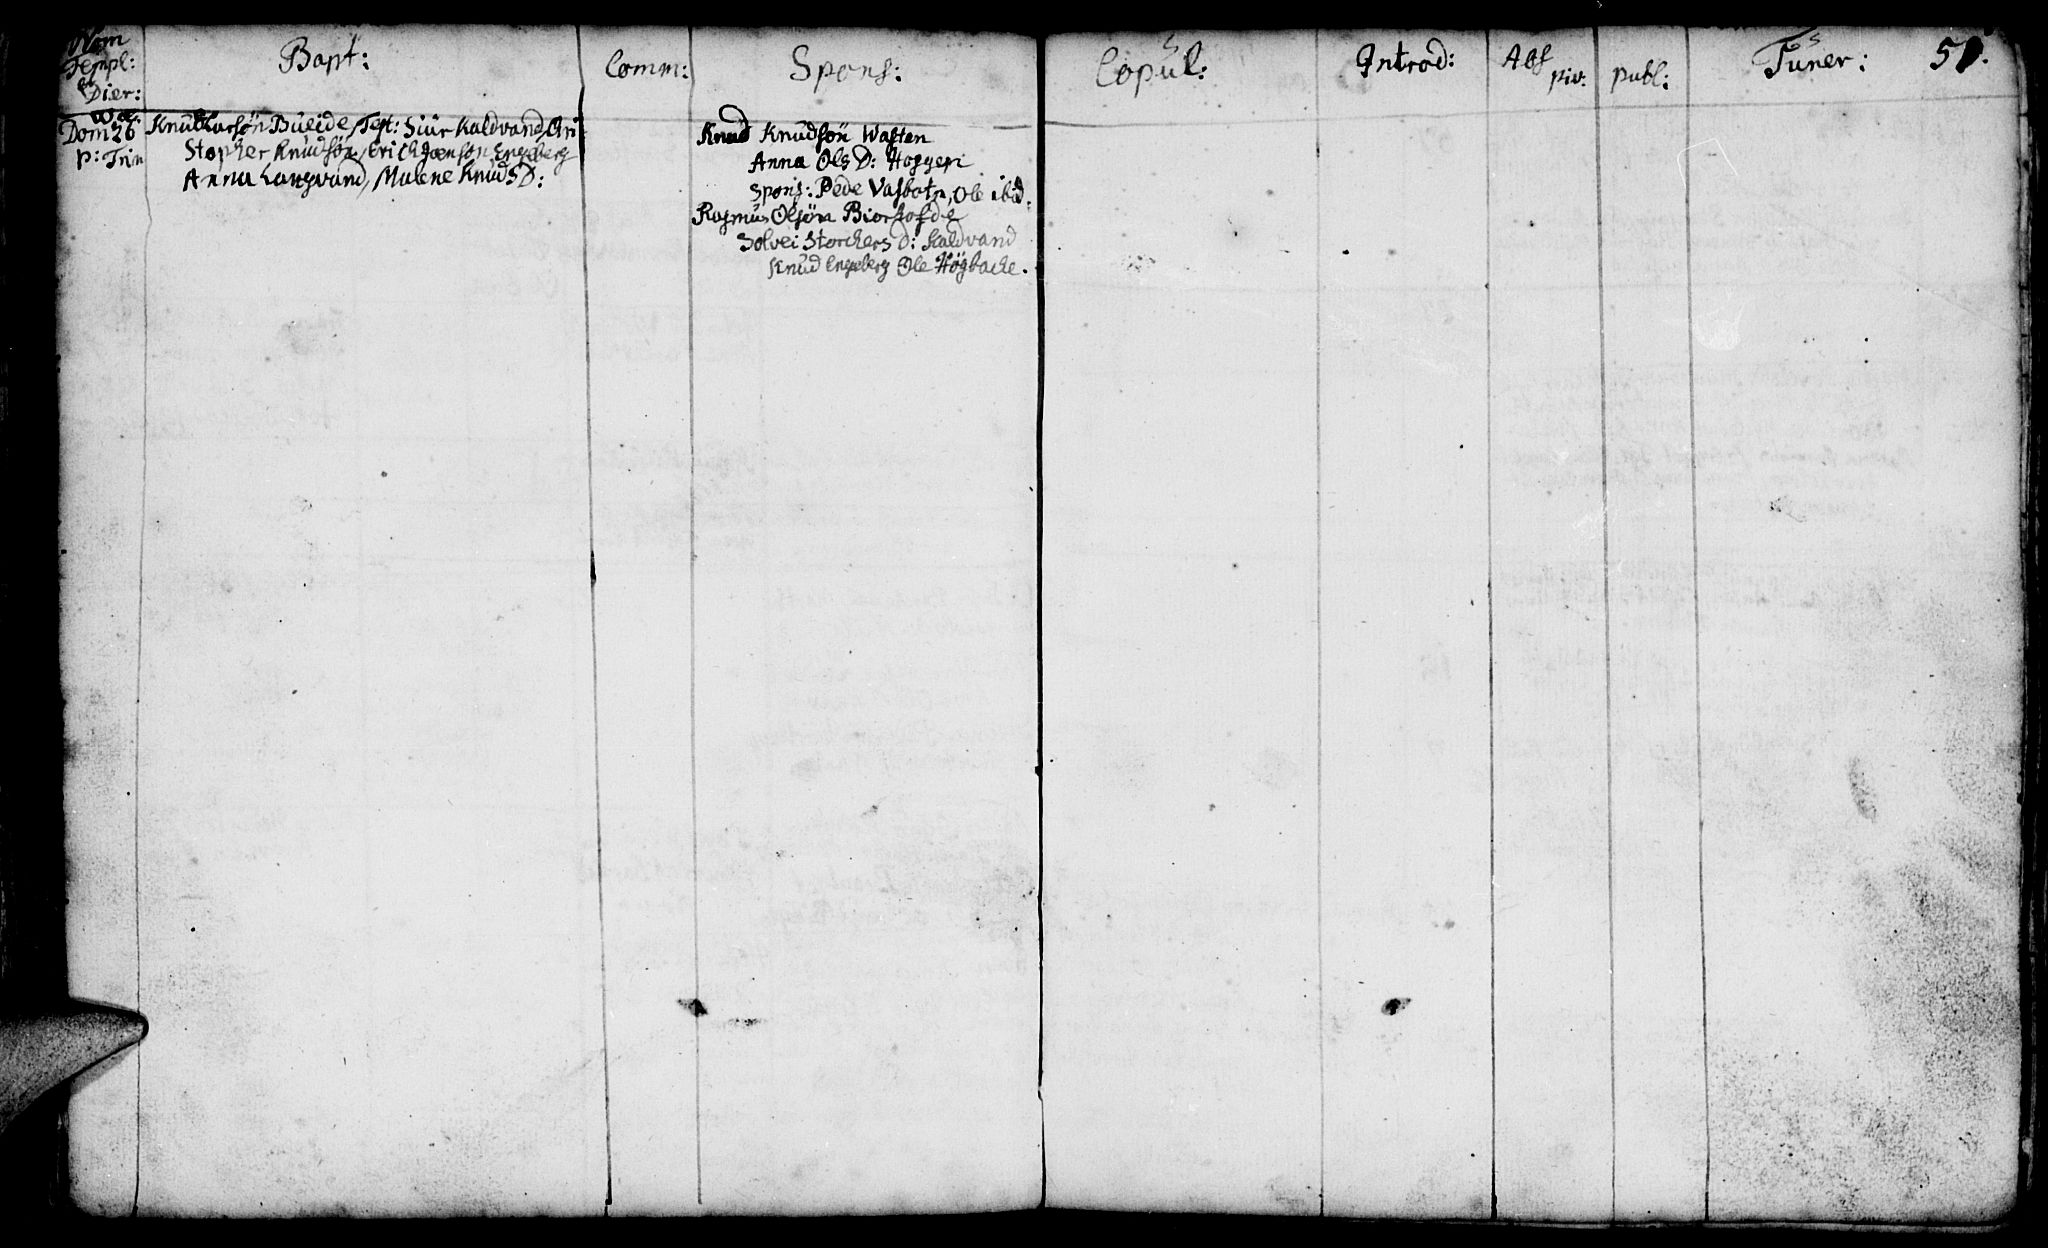 Nom
Templ:
et
Dier:
Bapt:
Comm:
Spons:
Copul:
Introd:
Abs
priv.
publ:
Funer:
51.
Dom 26
p: Trin
Knud Larsön Bueide, Test: Siur Kaldvand, Chri
Stopher Knudsön, Erich Joensön Engeberg
Anna Langvand, Malene Knuds D:
Knud Knudsön Wasten
Anna Ols D: Hoggen
Spons: Pede Vasbotn, Ole ibid.
Rasmus Olsön Biorstofde
Solvei Storchers D: Kaldvand
Knud Engeberg Ole Högbache.